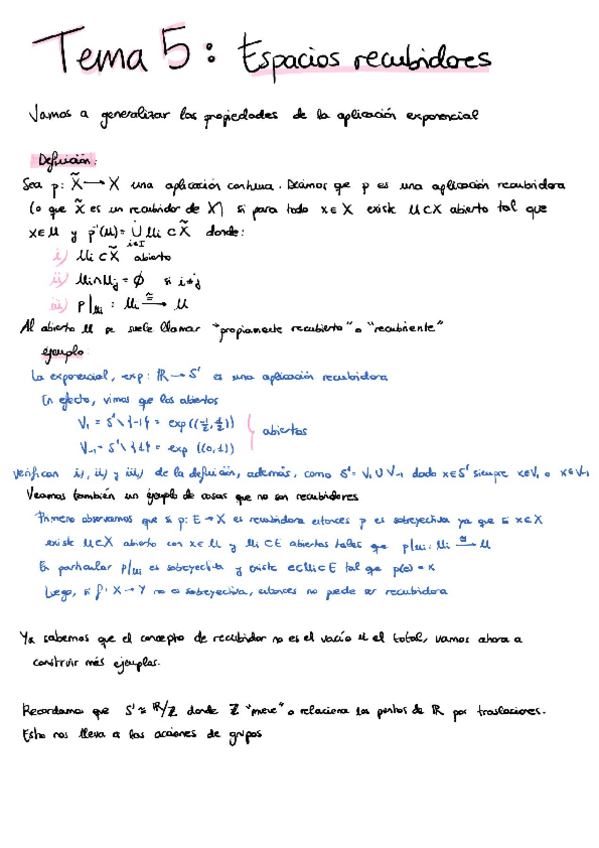 Tema 5: Espacios recubridores
Vamos a generalizar las propiedades de la aplicación exponencial
Definición:
Sea p: X̃ → X una aplicación continua. Decimos que p es una aplicación recubridora
(o que X̃ es un recubridor de X) si para todo x∈X existe U⊂X abierto tal que
x∈U y p⁻¹(U) = ∪̇_{i∈I} Ui ⊂ X̃ donde:
i) Ui ⊂ X̃ abierto
ii) Ui∩Uj = ∅ si i≠j
iii) p|Ui : Ui →≅ U
Al abierto U se suele llamar "propiamente recubierto" o "recubriente"
ejemplo:
La exponencial, exp: ℝ → S¹ es una aplicación recubridora
En efecto, vimos que los abiertos
V₁ = S¹\{-1} = exp((-½,½))
V₋₁ = S¹\{1} = exp((0,1))
abiertos
verifican i), ii) y iii) de la definición, además, como S¹ = V₁∪V₋₁ dado x∈S¹ siempre x∈V₁ o x∈V₋₁
Veamos también un ejemplo de cosas que no son recubridores
Primero observamos que si p: E→X es recubridora entonces p es sobreyectiva ya que si x∈X
existe U⊂X abierto con x∈U y Ui⊂E abiertos tales que p|Ui: Ui →≅ U
En particular p|Ui es sobreyectiva y existe e∈Ui⊂E tal que p(e)=x
Luego, si f: X→Y no es sobreyectiva, entonces no puede ser recubridora
Ya sabemos que el concepto de recubridor no es el vacío ni el total, vamos ahora a
construir más ejemplos.
Recordamos que S¹ ≅ ℝ/ℤ donde ℤ "mueve" o relaciona los puntos de ℝ por traslaciones.
Esto nos lleva a las acciones de grupos